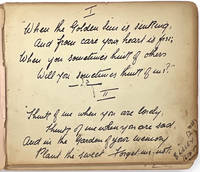 I
When the Golden Sun is sinking,
And from care your heart is free,
When you sometimes think of others
Will you sometimes think of me?
II
Think of me when you are lonely,
Think of me when you are sad,
And in the Garden of your memory
Plant the sweet Forget-me-not.